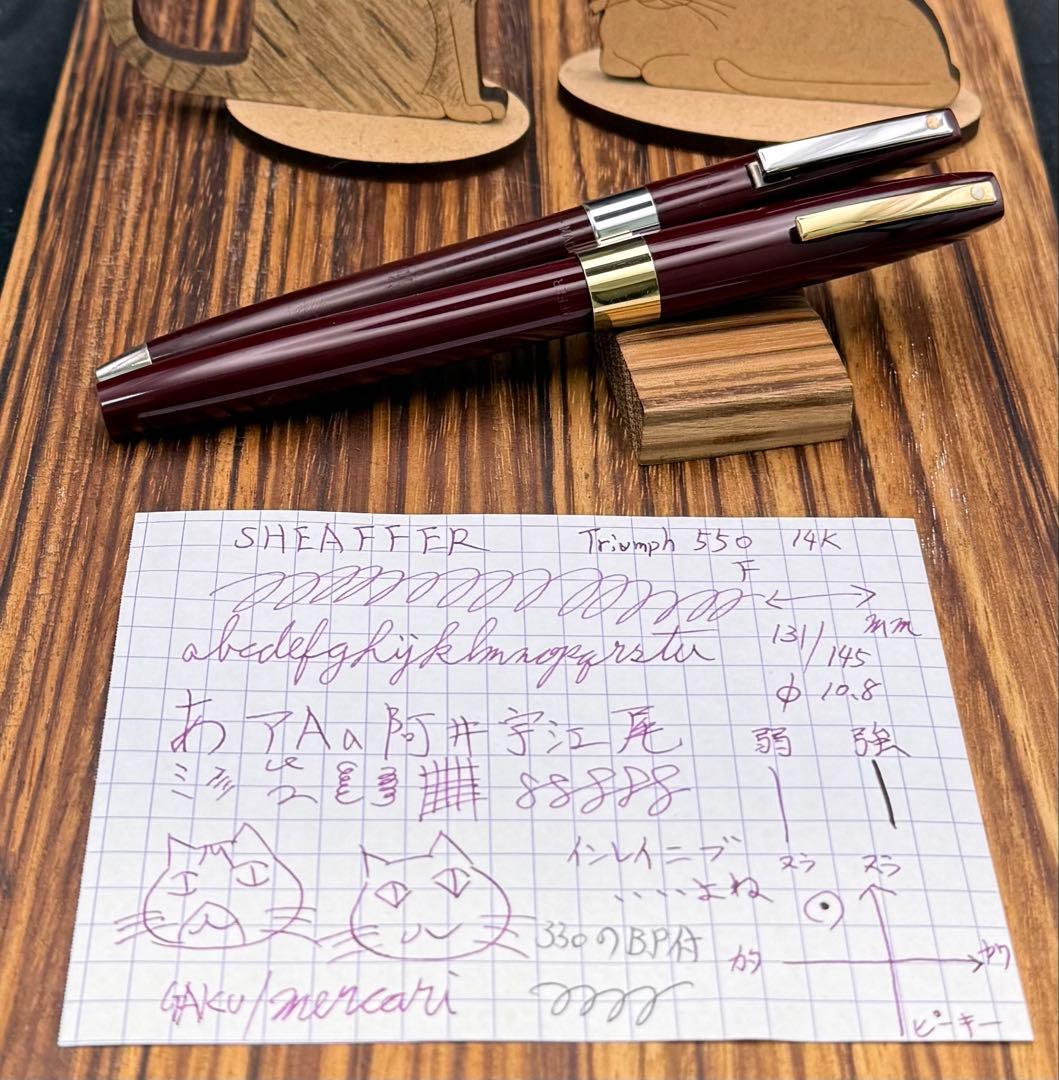 SHEAFFER Triumph 550 14K
F
abcdefghijklmnopqrstu
mm
131/145
φ 10.8
あ ア A a 阿 井 宇 江 尾
弱 強
インレイニブ
いいよね
ヌラ ヌラ
330のBP付
カタ
GAKU/mercari
ピーキー